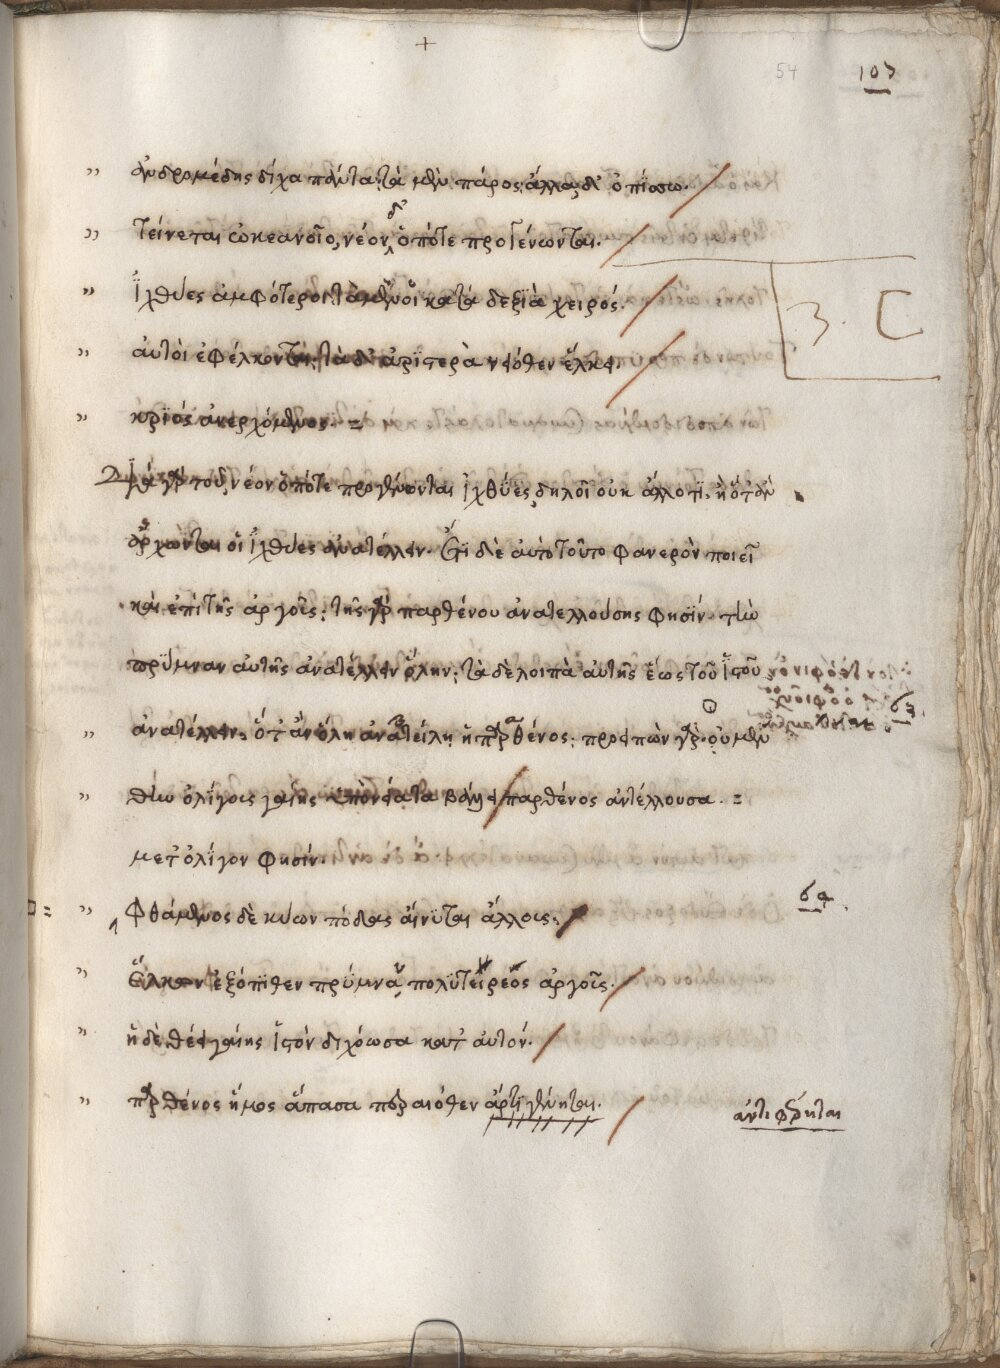 +
54
107
ἀνδρομέδης δίχα πάντα· τὰ μὲν πάρος· ἄλλα δ' ὀπίσω·
τείνεται ὠκεανοῖο, νέον δ' ὁπότε προγένωνται·
ἰχθύες ἀμφότεροι· τὰ μὲν οἱ κατὰ δεξιὰ χειρός·
3. C
αὐτοὶ ἐφέλκονται· τὰ δ' ἀριστερὰ νειόθεν ἕλκει·
κριὸς ἀνερχόμενος. =
γὰρ τοῦ, νέον ὁπότε προγένωνται ἰχθύες, δηλοῖ οὐκ ἄλλο τι, ἢ ὅταν
ἄρχωνται οἱ ἰχθύες ἀνατέλλειν. ἔτι δὲ αὐτὸ τοῦτο φανερὸν ποιεῖ
καὶ ἐπὶ τῆς ἀργοῖς· τῆς γὰρ παρθένου ἀνατελλούσης φησίν· τὴν
πρύμναν αὐτῆς ἀνατέλλειν ὅλην· τὰ δὲ λοιπὰ αὐτῆς ἕως τοῦ ἱστοῦ
63.
ἀνατέλλειν, ὅταν ὅλη ἀνατείλη ἡ παρθένος· προειπὼν γὰρ· οὐ μὲν
θὴν ὀλίγοις γαίης βάλλει παρθένος ἀντέλλουσα. =
μετ' ὀλίγον φησίν.
64.
Φθάμενος δὲ κύων πόδας αἴνυται ἄλλους·
ἕλκων ἐξόπιθεν πρύμναν πολυτειρέος ἀργοῖς·
ἡ δὲ θέει γαίης ἱστὸν διχόωσα κατ' αὐτόν·
παρθένος ἦμος ἅπασα περαιόθεν ἄρτι γένηται.
ἀντιφέρηται